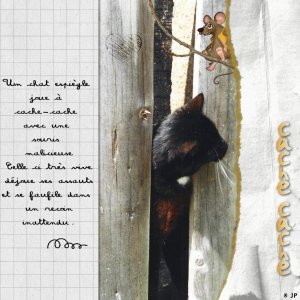 Un chat espiègle
joue à
cache-cache
avec une
souris
malicieuse
Celle ci très vive
déjoue ses assauts
et se faufile dans
un recoin
inattendu.
cache cache
© JP